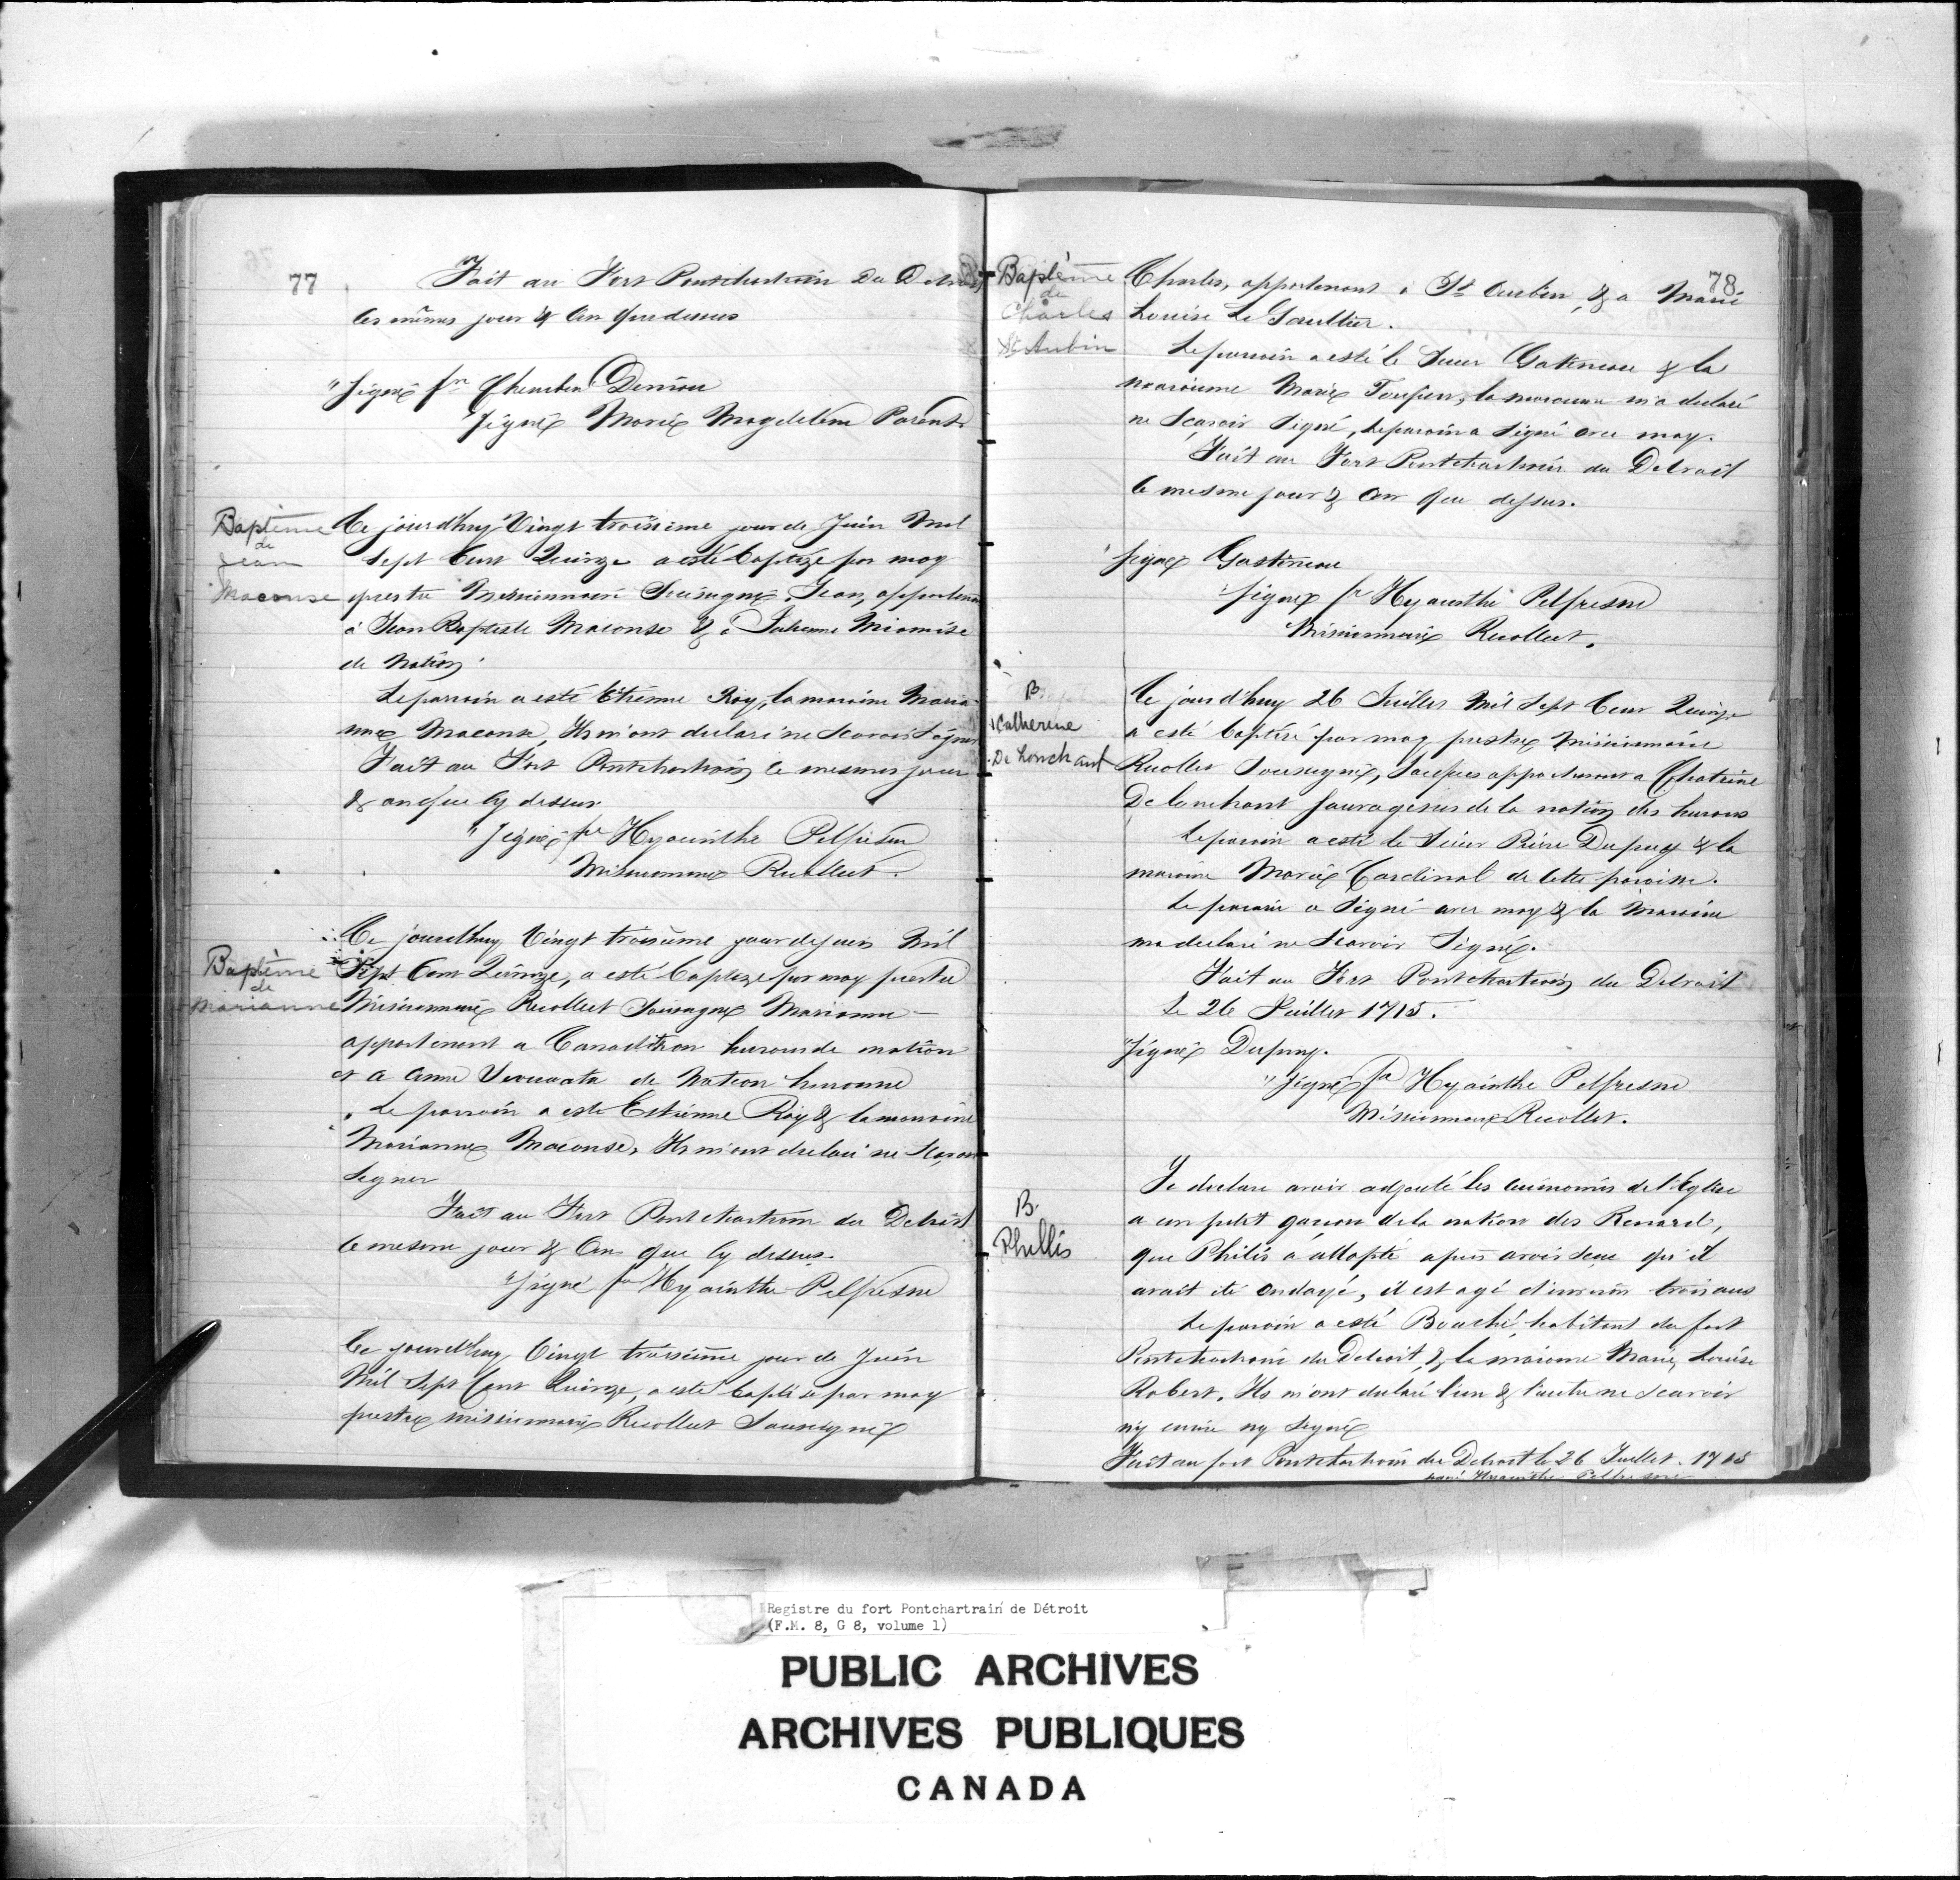 77
Fait au Fort Pontchartrain Du Detroit
les mêmes jour & An que dessus
"Signé fr Cherubin Deniau
Signé Marie Magdeleine Parent
Baptême
de
Jean
Maconse
Ce jourd'huy Vingt troisieme jour de Juin Mil
Sept Cent Quinze a esté Baptizé par moy
prestre Missionnaire Sousigné, Jean, appartenant
à Jean Baptiste Maconse & à Miamise
de Nation
Le parrain a esté Etienne Roy, la maraine Maria-
nne Maconse, Ils m'ont declaré ne Scavoir Signer
Fait au Fort Pontchartrain le mesmes jour
& an que cy dessus
"Signé fr Hyacinthe Pelfresne
Missionnaire Recollect.
Baptême
de
Marianne
Ce jourd'huy Vingt troisieme jour de juin Mil
Sept Cent Quinze, a esté baptizé par moy prestre
Missionnaire Recollect Sousigné Marianne
appartenant a huron de nation
et a Anne de Nation huronne
Le parrain a este Estienne Roy & la marraine
Marianne Maconse, Ils m'ont declaré ne Scavoir
Signer
Fait au Fort Pontchartrain du Detroit
le mesme jour & An que cy dessus.
"Signé fr Hyacinthe Pelfresne
Ce jourd'huy Vingt troisieme jour de Juin
Mil Sept Cent Quinze, a esté baptisé par moy
prestre missionnaire Recollect Sousigné
78
Baptême
de
Charles
St Aubin
Charles, appartenant à St Aubin, & a Marie
Louise Le Gaultier.
Le parrain a esté le Sieur Gatineau & la
maraine Marie, la maraine m'a declaré
ne Sçavoir Signé, le parain a Signé avec moy.
Fait au Fort Pontchartrain du Detroit
le mesme jour & An que dessus.
Signé Gastineau
"Signé fr Hyacinthe Pelfresne
Missionnaire Recollect.
B.
Catherine
De Lonchant
Ce jourd'huy 26 Juillet Mil Sept Cent Quinze
a esté baptisé par moy prestre Missionnaire
Recollet Sousigné, Jacques appartenant a Chatrine
De Lonchant Sauvagesses de la nation des hurons
Le parain a esté le Sieur Pierre Dupuy & la
maraine Marie Cardinal de cette paroisse.
Le parain a Signé avec moy & la Maraine
ma declaré ne Scavoir Signé.
Fait au Fort Pontchartrain du Detroit
Le 26 Juillet 1715.
"Signé Dupuy.
"Signé fr Hyacinthe Pelfresne
Missionnaire Recollet.
B.
Phillis
Je declare avoir adjouté les ceremonies de l'Eglise
a un petit garcon de la nation des Renard,
que Philis a addopté apres avoir Sceu qu'il
avait ete ondoyé, il est agé d'environ trois ans
Le parain a esté Bouché, habitant du fort
Pontchartrain du Detroit, & la maraine Marie, Louise
Robert. Ils m'ont declaré l'un & l'autre ne scavoir
ny ecrire ny Signé
Fait au fort Pontchartrain du Detroit le 26 Juillet 1715
Hyacinthe Pelfresne
Registre du fort Pontchartrain de Détroit
(F.M. 8, G 8, volume 1)
PUBLIC ARCHIVES
ARCHIVES PUBLIQUES
CANADA